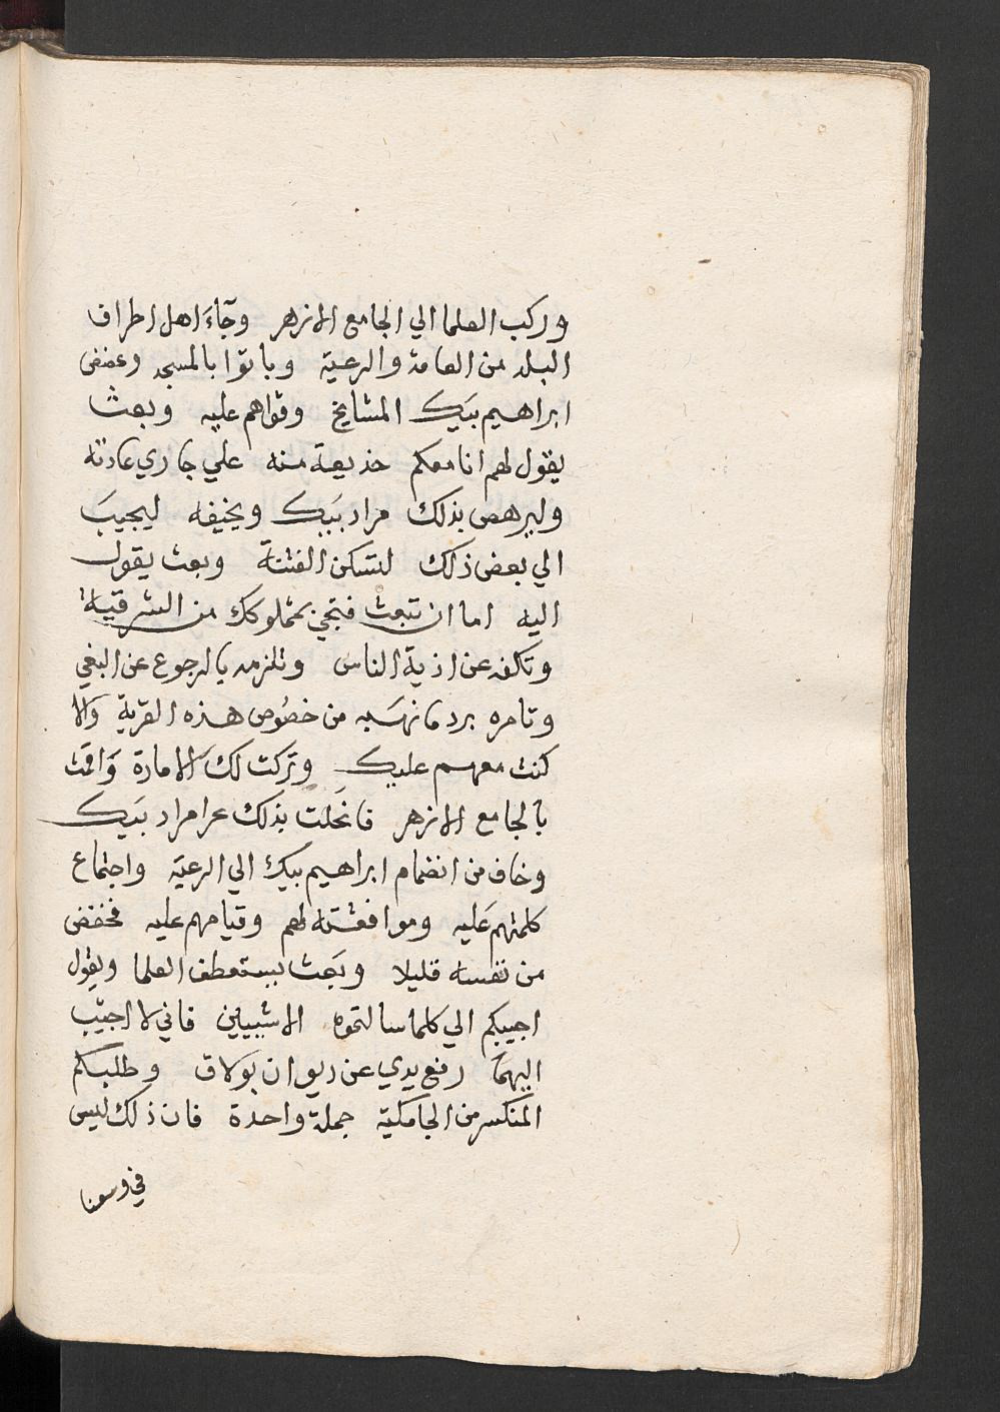 وركب العلما الي الجامع الازهر وجآءَ اهل اطراف
البلد من العامة والرعية وباتوا بالمسجد وعضض
ابراهيم بيَك المشايخ وقواهم عليه وبعث
يقول لهم انا معكم خذيعة منه علي جاري عادته
وليرهص بذلك مراد بيَك ويخيفه ليجيبَ
الي بعض ذلك لتسكن الفتنة وبعث يقول
اليه اما ان تبعث فتجي بمملوكك من الشرقية
وتكفه عن اذية الناس وتلزمه بالرجوع عن البغي
وتامره برد ما نهَبه من خصُوص هذه القرية وَالا
كنت معهم عليك وتركت لك الامارة وَاقمت
بالجامع الازهر فانحَلت بذلك عرا مراد بيَك
وخاف من انضمام ابراهيم بيك الي الرعية واجتماع
كلمتهم عَليه وموافقته لهم وقيامهم عليه فخفض
من نفسه قليلا وبَعث يستعطف العلما ويقول
اجيبكم الي كلما سالتموه الا شييين فاني لا اجيب
اليهمآ رفع يدي عن ديوان بَولاق وطلبكم
المنكسر من الجامكية جملة واحدة فان ذلك ليس
في وسعنا